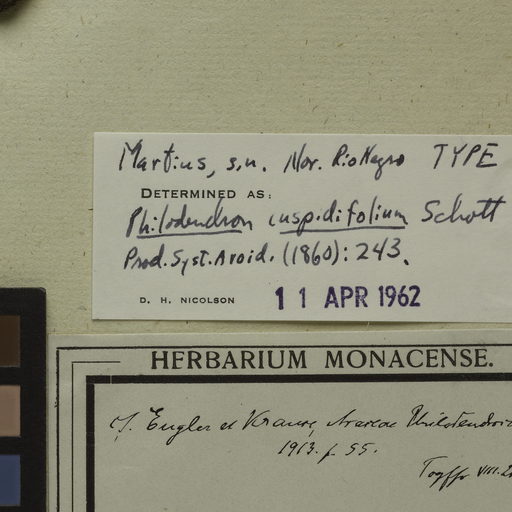 Martius, s.n. Nov. Rio Negro TYPE
DETERMINED AS:
Philodendron cuspidifolium Schott
Prod. Syst. Aroid. (1860): 243.
D. H. NICOLSON 11 APR 1962
HERBARIUM MONACENSE.
cf. Engler et Krause, Araceae Philodendroi
1913. p. 55.
VIII.